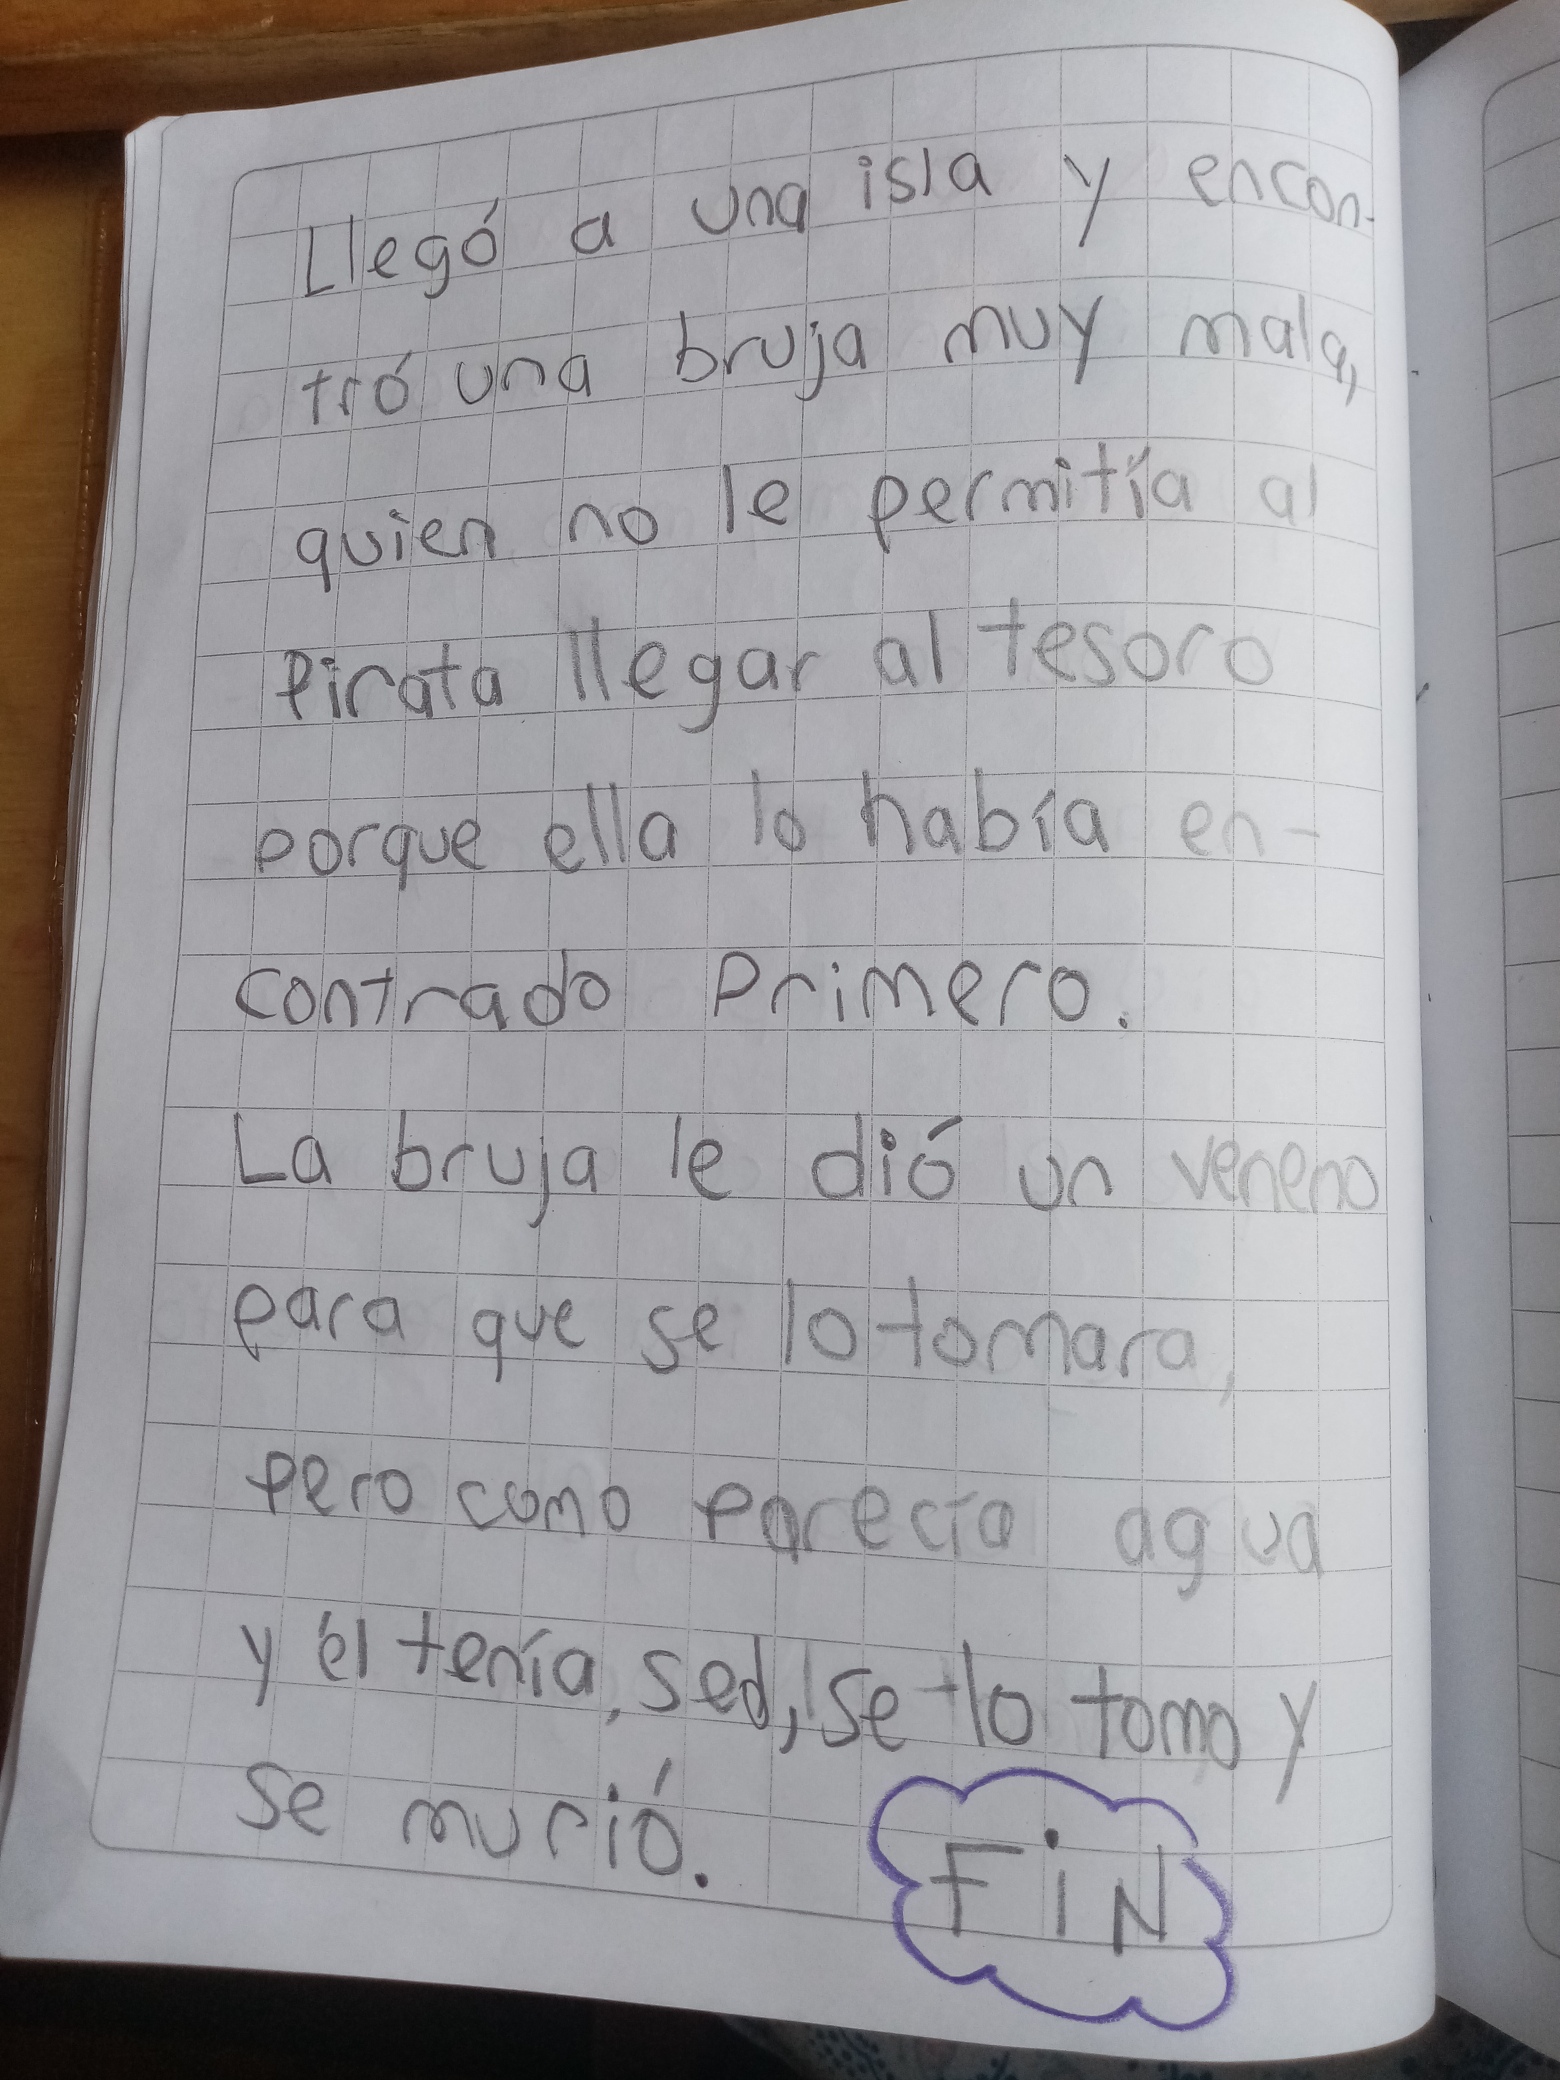 Llegó a una isla y encon-
tró una bruja muy mala,
quien no le permitía al
Pirata llegar al tesoro
porque ella lo había en-
contrado Primero.
La bruja le dió un veneno
para que se lo tomara,
pero como parecía agua
y él tenía, sed, se lo tomo y
se murió.
FiN